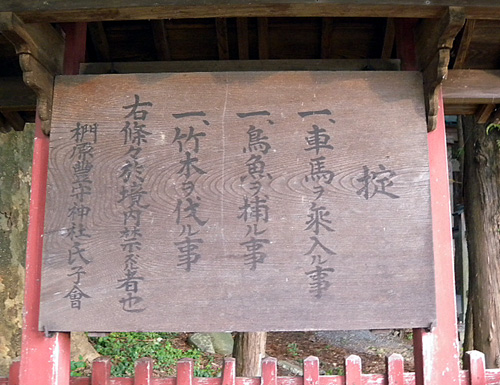 掟
一、車馬ヲ乗入ル事
一、鳥魚ヲ捕ル事
一、竹木ヲ伐ル事
右條々於境内禁
者也
神社氏子會